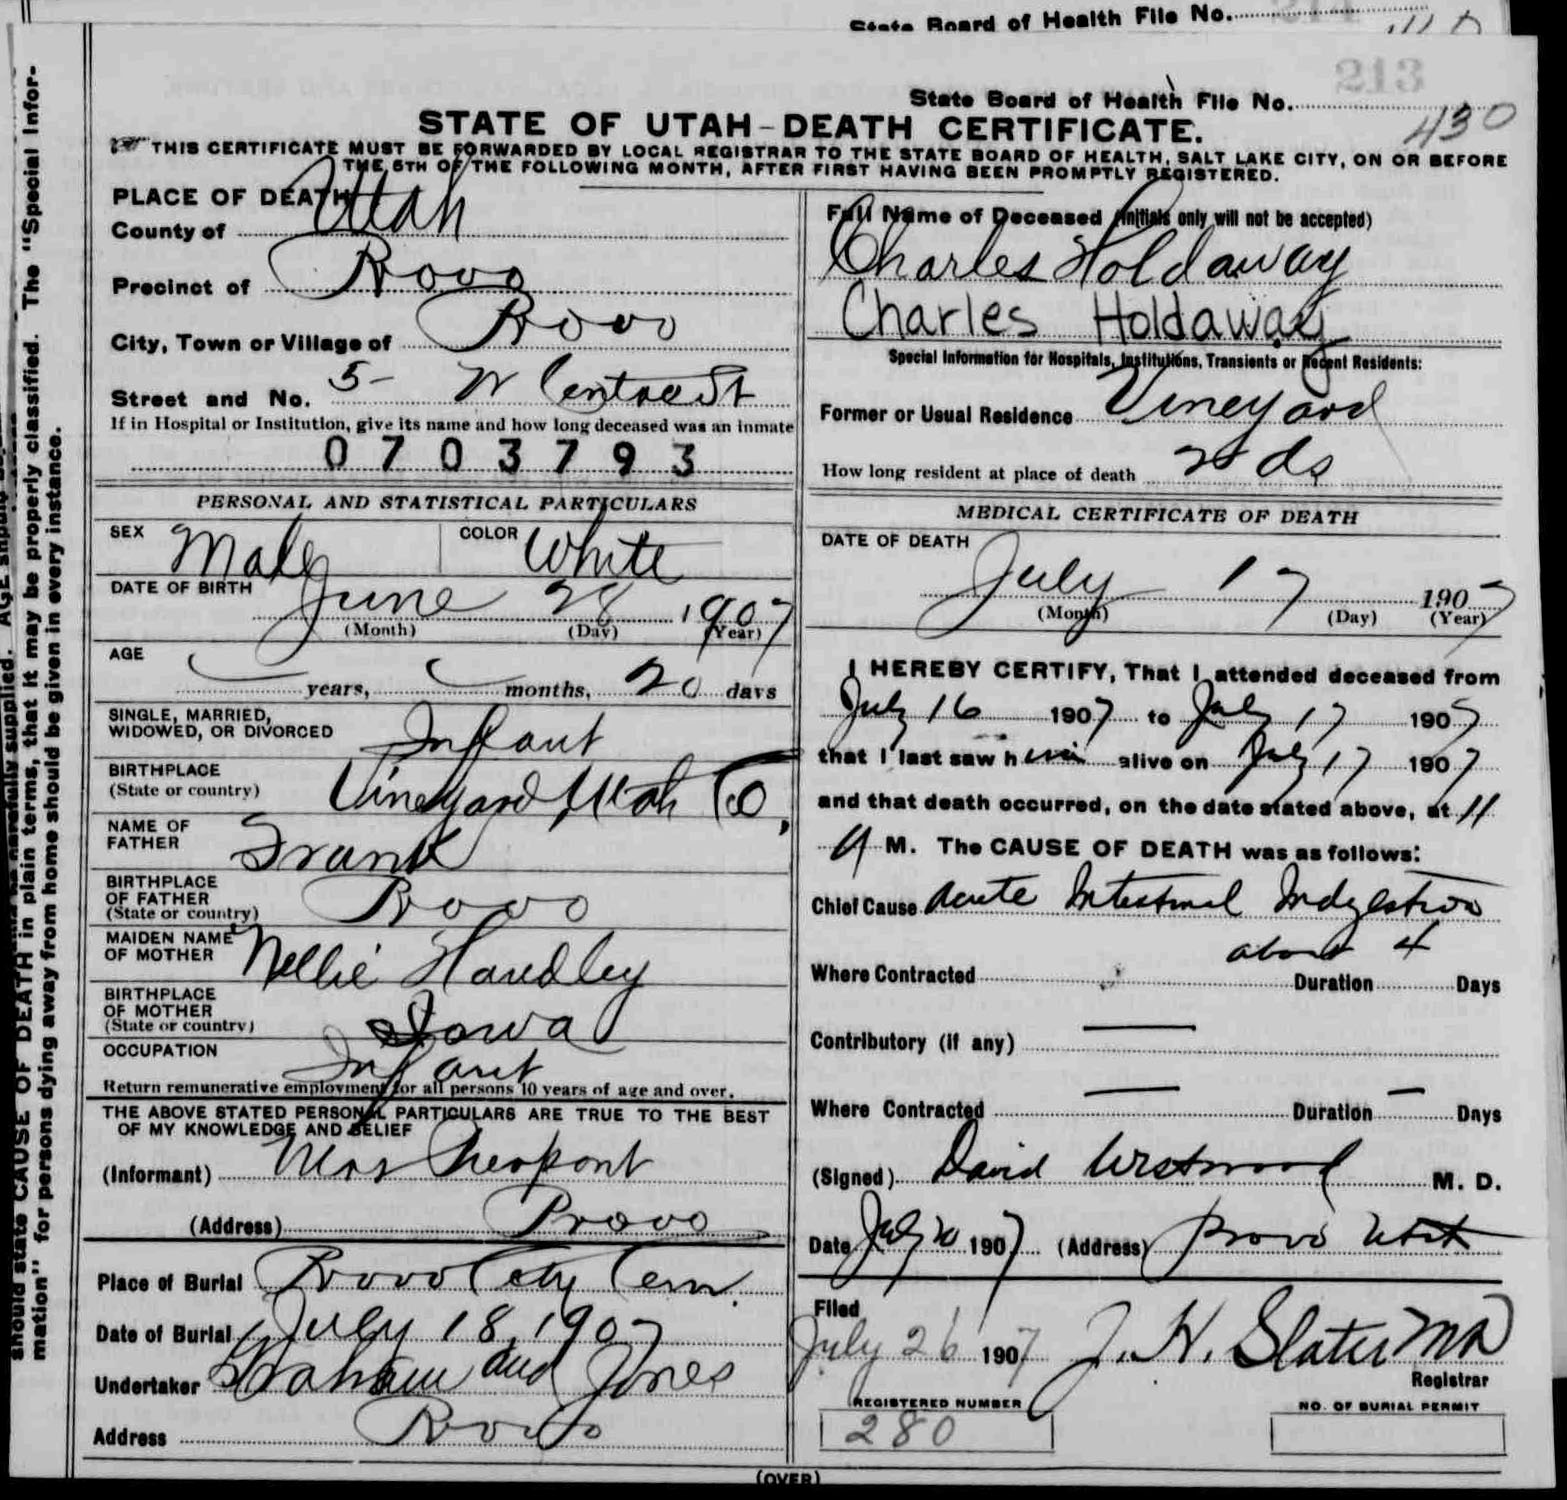 State Board of Health File No.
213
State Board of Health File No. 430
STATE OF UTAH-DEATH CERTIFICATE.
THIS CERTIFICATE MUST BE FORWARDED BY LOCAL REGISTRAR TO THE STATE BOARD OF HEALTH, SALT LAKE CITY, ON OR BEFORE
THE 5TH OF THE FOLLOWING MONTH, AFTER FIRST HAVING BEEN PROMPTLY REGISTERED.
PLACE OF DEATH
County of Utah
Precinct of Provo
City, Town or Village of Provo
Street and No. 5- W Centre St
If in Hospital or Institution, give its name and how long deceased was an inmate
0703793
PERSONAL AND STATISTICAL PARTICULARS
SEX Male COLOR White
DATE OF BIRTH
June 28 1907
(Month) (Day) (Year)
AGE
years, months, 20 days
SINGLE, MARRIED,
WIDOWED, OR DIVORCED Infant
BIRTHPLACE
(State or country) Vineyard Utah Co,
NAME OF
FATHER Frank
BIRTHPLACE
OF FATHER
(State or country) Provo
MAIDEN NAME
OF MOTHER Nellie Handley
BIRTHPLACE
OF MOTHER
(State or country) Iowa
OCCUPATION Infant
Return remunerative employment for all persons 10 years of age and over.
THE ABOVE STATED PERSONAL PARTICULARS ARE TRUE TO THE BEST
OF MY KNOWLEDGE AND BELIEF
(Informant) Mrs
(Address) Provo
Place of Burial Provo City Cem.
Date of Burial July 18, 1907
Undertaker Graham and Jones
Address Provo
Full Name of Deceased (Initials only will not be accepted)
Charles Holdaway
Charles Holdaway
Special Information for Hospitals, Institutions, Transients or Recent Residents:
Former or Usual Residence Vineyard
How long resident at place of death 2 ds
MEDICAL CERTIFICATE OF DEATH
DATE OF DEATH
July 17 1907
(Month) (Day) (Year)
I HEREBY CERTIFY, That I attended deceased from
July 16 1907 to July 17 1907
that I last saw him alive on July 17 1907
and that death occurred, on the date stated above, at 11
A M. The CAUSE OF DEATH was as follows:
Chief Cause Acute Intestinal Indigestion
about 4
Where Contracted Duration Days
Contributory (if any) —
Where Contracted — Duration — Days
(Signed) David Westwood M. D.
Date July 20 1907 (Address) Provo Utah
Filed
July 26 1907 J. H. Slater MD
Registrar
REGISTERED NUMBER
280
NO. OF BURIAL PERMIT
(OVER)
should state CAUSE OF DEATH in plain terms, that it may be properly classified. The "Special Infor-
mation" for persons dying away from home should be given in every instance.